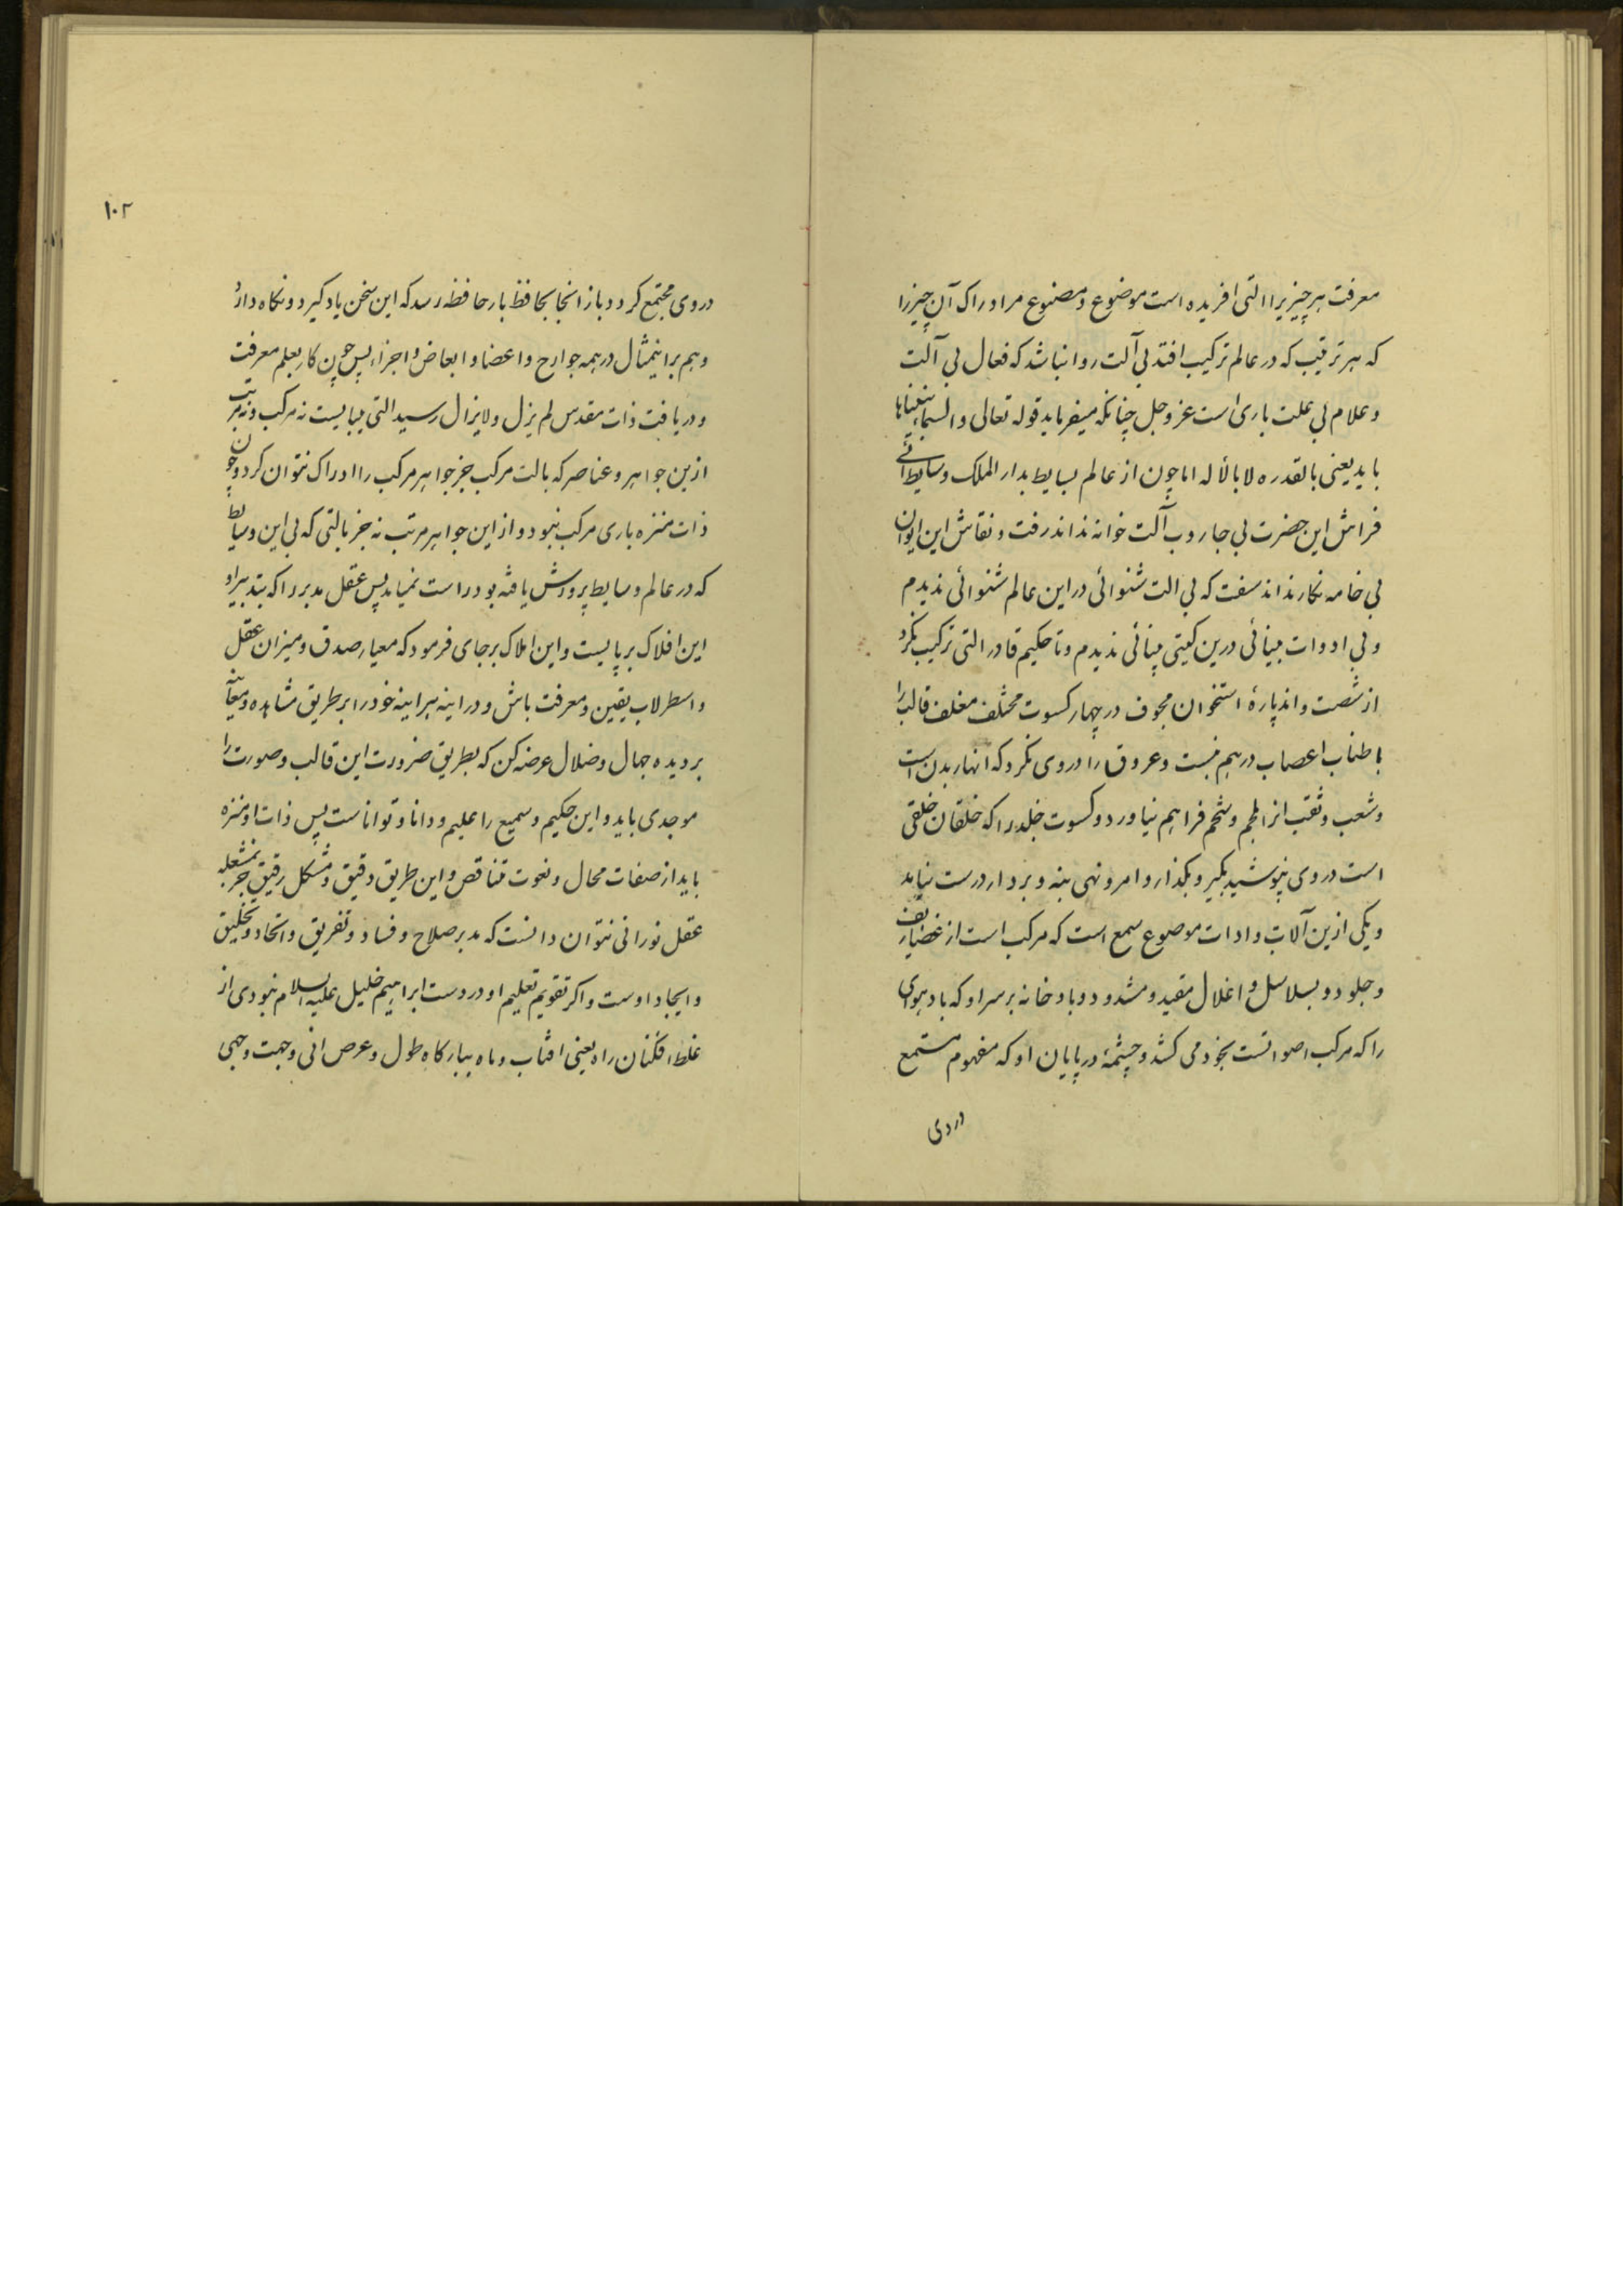 معرفت هر چیزیرا التی افریده است موضوع و مصنوع مر ادراک آن چیزرا
که هر ترتیب که در عالم ترکیب افتد بی آلت روا نباشد که فعال بی آلت
و علام بی علت باری است عز و جل چنانکه میفرماید قوله تعالی والسماء بنیناها
باید یعنی بالقدره لا بالأله اما چون از عالم بسایط بدار الملک وسایط
فراش این حضرت بی جاروب آلت خوانه نداند رفت و نقاش این ایوان
بی خامه نگار نداند سفت که بی الت شنوائی در این عالم شنوائی ندیدم
و بی ادوات بینائی درین گیتی بینائی ندیدم و تا حکیم قادر التی ترکیب نکرد
از شصت و اند پارهٔ استخوان مجوف در چهار کسوت مختلف مغلف قالب را
باطناب اعصاب در هم نبست و عروق را در وی نکرد که انهار بدن است
و شعب و ثقب از لحم و شحم فراهم نیاورد و کسوت جلد را که خلقان خلقی
است در وی نپوشید بگیر و بگذار و امر و نهی بنه و بردار درست نیاید
و یکی ازین آلات و ادات موضوع سمع است که مرکب است از غضاریف
و جلود و بسلاسل و اغلال مقید و مشدود و باد خانه بر سر او که باد هوای
را که مرکب اصواتست بخود می کشد و چشمهٔ در پایان او که مفهوم مستمع
در وی
۱۰۲
در وی مجتمع کردد و باز انجا بحافظ بار حافظه رسد که این سخن یاد گیرد و نگاه دارد
و هم براینمثال در همه جوارح و اعضا و ابعاض و اجزاء پس چون کار بعلم معرفت
و دریافت ذات مقدس لم یزل و لا یزال رسید التی میبایست نه مرکب و نه مرتب
ازین جواهر و عناصر که بالت مرکب جز جواهر مرکب را ادراک نتوان کرد و چون
ذات منزه باری مرکب نبود و از این جواهر مرتب نه جز بالتی که بی این وسایط
که در عالم وسایط پرورش یافته بود راست نمیاید پس عقل مدبر را که بتدبیر او
این افلاک بر پایست و این املاک بر جای فرمود که معیار صدق و میزان عقل
و اسطرلاب یقین و معرفت باش و در اینه هر اینه خود را بر طریق مشاهده و معاینه
بر دیده جمال و ضلال عرضه کن که بطریق ضرورت این قالب و صورت را
موجدی باید و این حکیم و سمیع را علیم و دانا و تواناست پس ذات او منزه
باید از صفات محال و نعوت متناقص و این طریق دقیق و مشکل رقیق جز بمشعله
عقل نورانی نتوان دانست که مدبر صلاح و فساد و تفریق و اتحاد و تخلیق
و ایجاد اوست و اگر تقویم تعلیم او در دست ابراهیم خلیل علیه السلام نبودی از
غلط افکنان راه یعنی افتاب و ماه ببارکاه طول و عرض انی وجهت وجهی